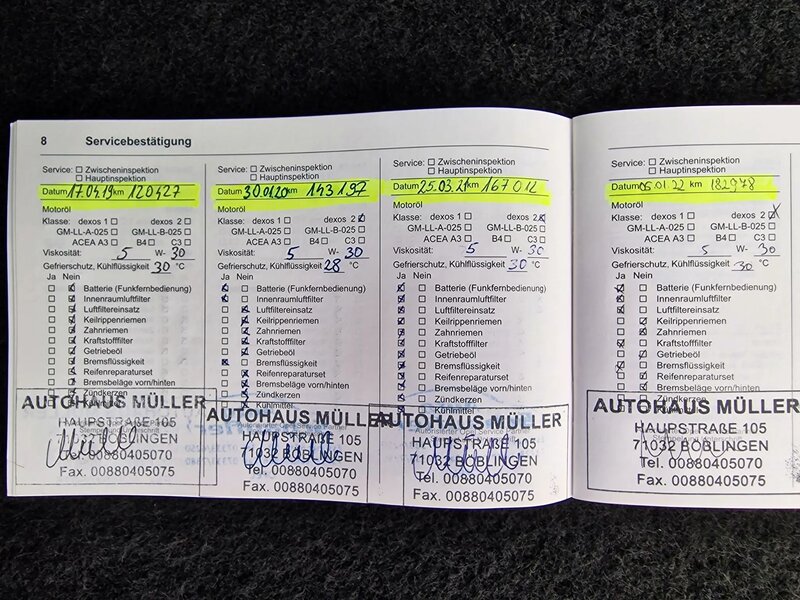 8 Servicebestätigung
Service: Zwischeninspektion
Hauptinspektion
Datum 17.04.19 km 120427
Motoröl
Klasse: dexos 1 dexos 2
GM-LL-A-025 GM-LL-B-025
ACEA A3 B4 C3
Viskosität: 5 W- 30
Gefrierschutz, Kühlflüssigkeit 30 °C
Ja Nein
Batterie (Funkfernbedienung)
Innenraumluftfilter
Luftfiltereinsatz
Keilrippenriemen
Zahnriemen
Kraftstofffilter
Getriebeöl
Bremsflüssigkeit
Reifenreparaturset
Bremsbeläge vorn/hinten
Zündkerzen
Kühlmittel
AUTOHAUS MÜLLER
HAUPSTRAßE 105
71032 BÖBLINGEN
Tel. 00880405070
Fax. 00880405075
Service: Zwischeninspektion
Hauptinspektion
Datum 30.01.20 km 143197
Motoröl
Klasse: dexos 1 dexos 2
GM-LL-A-025 GM-LL-B-025
ACEA A3 B4 C3
Viskosität: 5 W- 30
Gefrierschutz, Kühlflüssigkeit 28 °C
Ja Nein
Batterie (Funkfernbedienung)
Innenraumluftfilter
Luftfiltereinsatz
Keilrippenriemen
Zahnriemen
Kraftstofffilter
Getriebeöl
Bremsflüssigkeit
Reifenreparaturset
Bremsbeläge vorn/hinten
Zündkerzen
Kühlmittel
AUTOHAUS MÜLLER
HAUPSTRAßE 105
71032 BÖBLINGEN
Tel. 00880405070
Fax. 00880405075
Service: Zwischeninspektion
Hauptinspektion
Datum 25.03.21 km 167012
Motoröl
Klasse: dexos 1 dexos 2
GM-LL-A-025 GM-LL-B-025
ACEA A3 B4 C3
Viskosität: 5 W- 30
Gefrierschutz, Kühlflüssigkeit 30 °C
Ja Nein
Batterie (Funkfernbedienung)
Innenraumluftfilter
Luftfiltereinsatz
Keilrippenriemen
Zahnriemen
Kraftstofffilter
Getriebeöl
Bremsflüssigkeit
Reifenreparaturset
Bremsbeläge vorn/hinten
Zündkerzen
Kühlmittel
AUTOHAUS MÜLLER
HAUPSTRAßE 105
71032 BÖBLINGEN
Tel. 00880405070
Fax. 00880405075
Service: Zwischeninspektion
Hauptinspektion
Datum 05.01.22 km 182978
Motoröl
Klasse: dexos 1 dexos 2
GM-LL-A-025 GM-LL-B-025
ACEA A3 B4 C3
Viskosität: 5 W- 30
Gefrierschutz, Kühlflüssigkeit 30 °C
Ja Nein
Batterie (Funkfernbedienung)
Innenraumluftfilter
Luftfiltereinsatz
Keilrippenriemen
Zahnriemen
Kraftstofffilter
Getriebeöl
Bremsflüssigkeit
Reifenreparaturset
Bremsbeläge vorn/hinten
Zündkerzen
AUTOHAUS MÜLLER
HAUPSTRAßE 105
71032 BÖBLINGEN
Tel. 00880405070
Fax. 00880405075